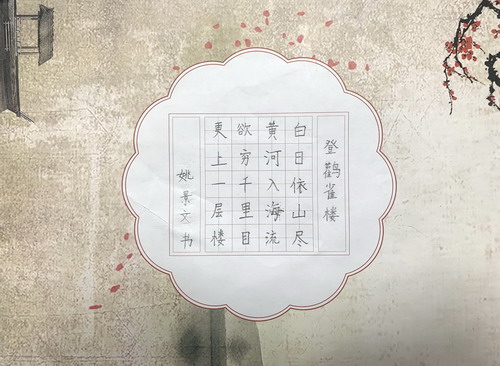 登鹳雀楼
白日依山尽
黄河入海流
欲穷千里目
更上一层楼
姚景文书